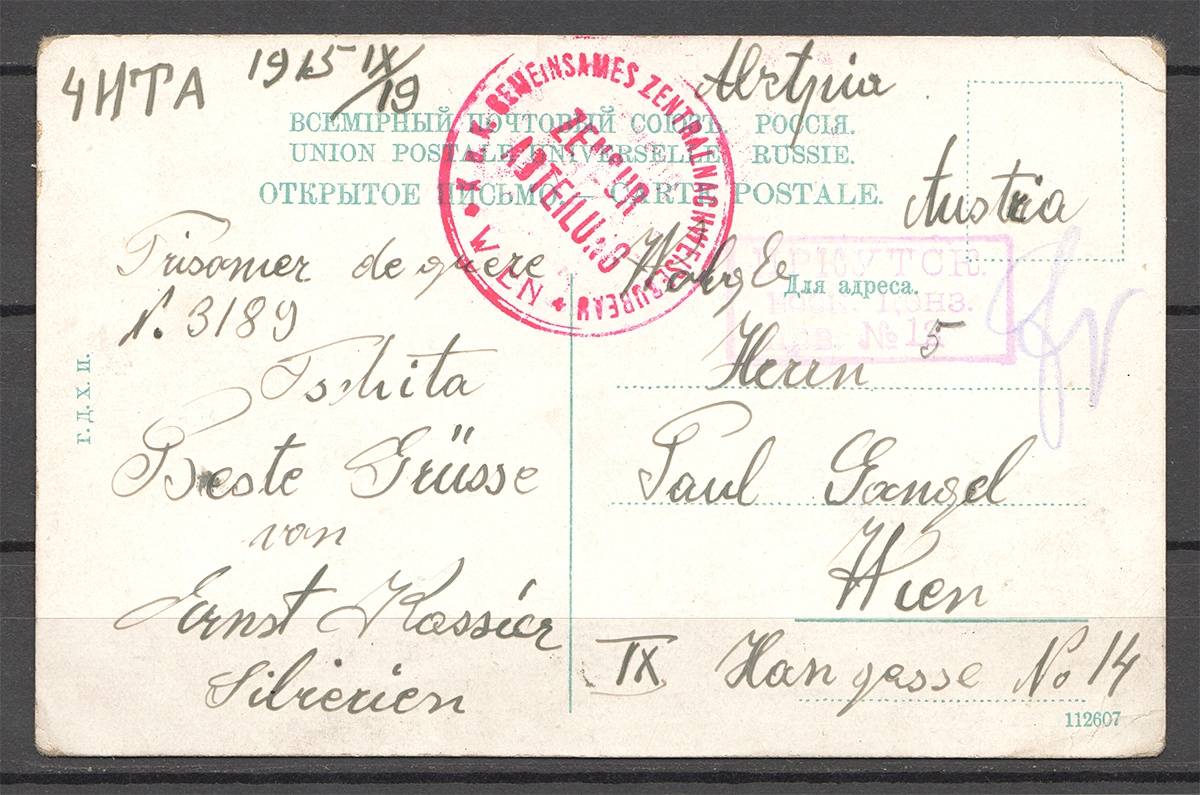 ЧИТА 1915 IX/19
Австрія
ВСЕМІРНЫЙ ПОЧТОВЫЙ СОЮЗЪ. РОССІЯ.
UNION POSTALE UNIVERSELLE. RUSSIE.
ОТКРЫТОЕ ПИСЬМО. — CARTE POSTALE.
K.u.K. GEMEINSAMES ZENTRALNACHWEISEBUREAU
ZENSUR
ABTEILUNG
* WIEN *
Austria
Prisonier de guere
N. 3189
Tschita
Beste Grüsse
von
Ernst Kassiér
Sibierien
ИРКУТСК.
ВОЕН. ЦЕНЗ.
№ 12
Для адреса.
5
Herrn
Paul Gangel
Wien
IX Hangasse No 14
Г. Д. Х. П.
112607